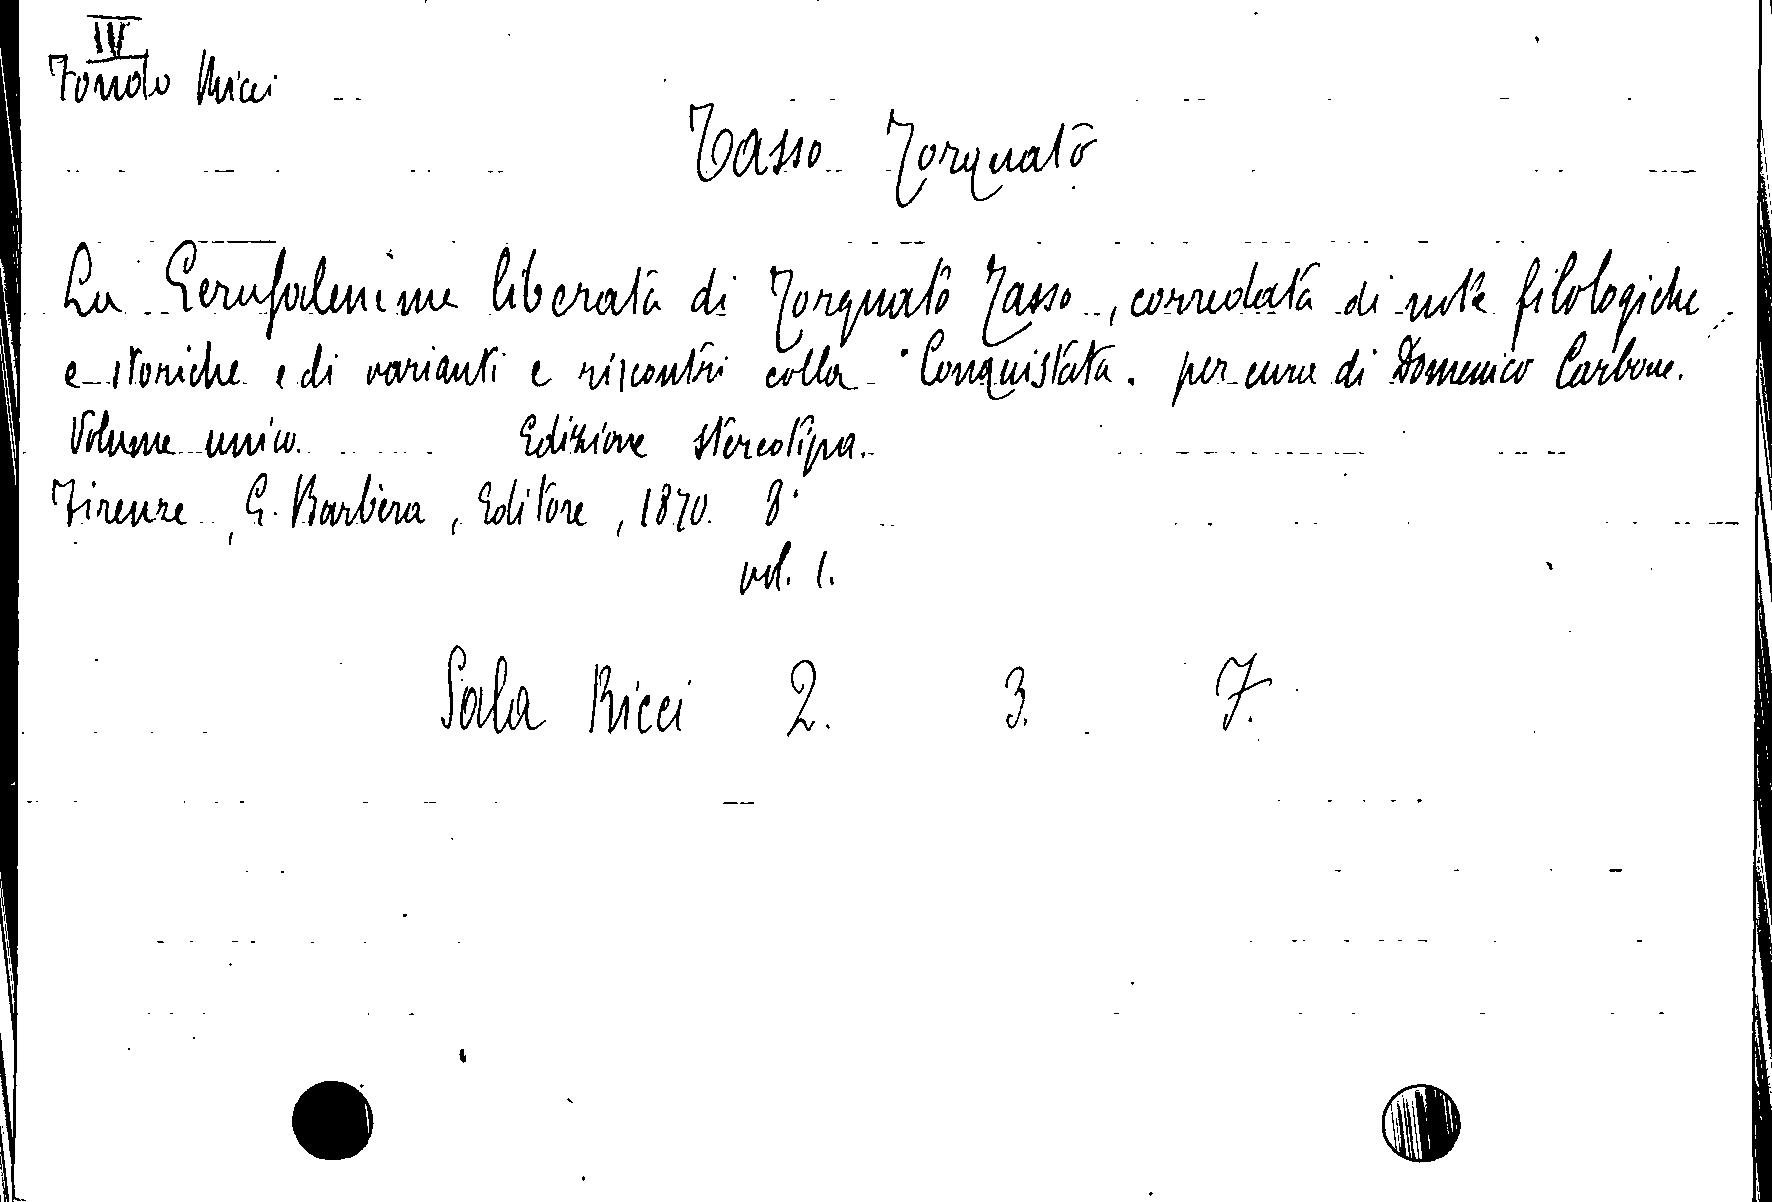 IV
Fondo Ricci
Tasso Torquato
La Gerusalemme liberata di Torquato Tasso, corredata di note filologiche
e storiche e di varianti e riscontri colla Conquistata. per cura di Domenico Carbone.
Volume unico. Edizione stereotipa.
Firenze, G. Barbèra, Editore, 1870. 8°
vol. 1.
Sala Ricci 2. 3. 7.